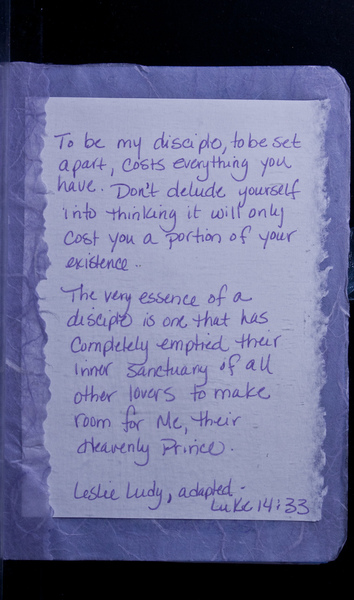 To be my disciple, to be set
apart, costs everything you
have. Don't delude yourself
into thinking it will only
cost you a portion of your
existence..
The very essence of a
disciple is one that has
completely emptied their
inner sanctuary of all
other lovers to make
room for Me, their
Heavenly Prince.
Leslie Ludy, adapted -
Luke 14:33